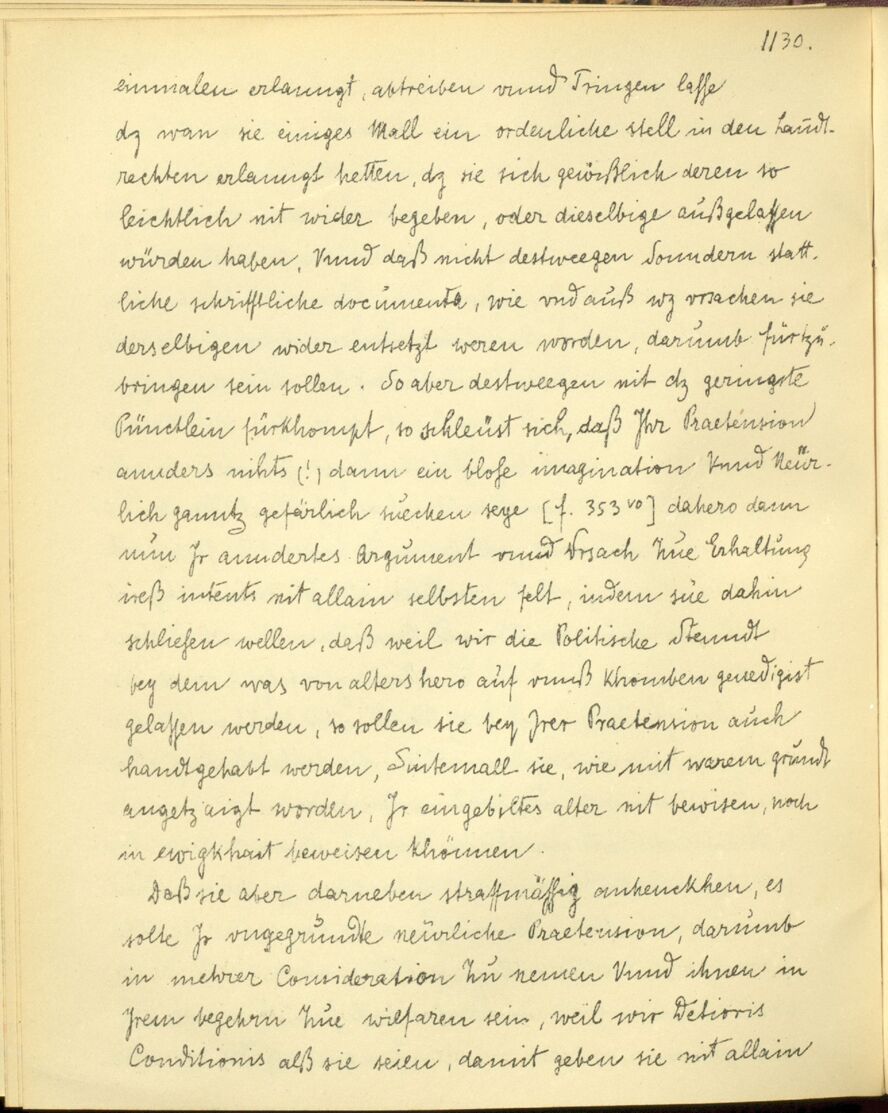 1130.
einmalen erlanngt, abtreiben vnnd Tringen lasse
dz wan sie einiges Mall ein ordenliche stell in den Landt-
rechten erlanngt hetten, dz sie sich gewißlich deren so
leichtlich nit wider begeben, oder dieselbige außgelassen
würden haben, Vnnd daß nicht destweegen Sonndern statt-
liche schrifftliche documenta, wie vnd auß wz vrsachen sie
derselbigen wider entsetzt weren worden, darumb fürtzu-
bringen sein sollen. So aber destweegen nit dz geringste
Pünctlein fürkhompt, so schleüst sich, daß Ihr Praetension
annders nihts (!) dann ein blose imagination Vnnd Neür-
lich ganntz gefärlich suechen seye [f. 353 vo] dahero dann
nun Jr anndertes Argument vnnd Vrsach Zue Erhaltung
ireß intents nit allain selbsten felt, indem sie dahin
schliesen wellen, daß weil wir die Politische Stenndt
bey dem was von alters hero auf vnnß khomben genedigist
gelassen werden, so sollen sie bey Jrer Praetension auch
handtgehabt werden, Sintemall sie, wie mit warem grundt
angetzaigt worden, Jr eingebiltes alter nit bewisen, noch
in ewigkhait beweisen khönnen.
Daß sie aber darneben straffmässig anhenckhen, es
solte Jr vngegründte neürliche Praetension, darumb
in mehrer Consideration Zu nemen Vnnd ihnen in
Jrem begehrn Zue wilfaren sein, weil wir Detioris
Conditionis alß sie seien, damit geben sie nit allain